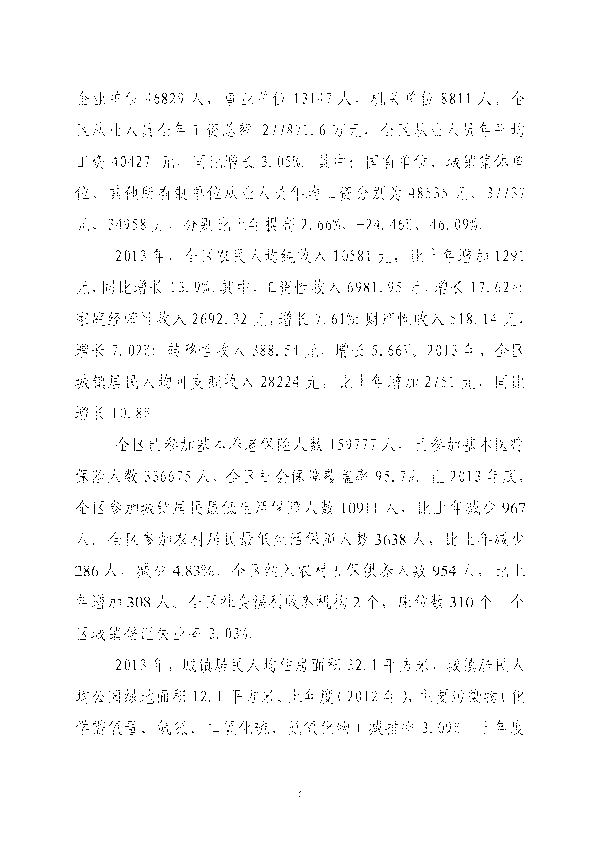 企业单位 46829 人，事业单位 13147 人，机关单位 8811 人。全
区从业人员全年工资总额 277871.6 万元，全区从业人员年平均
工资 40427 元，同比增长 3.05%。其中：国有单位、城镇集体单
位、其他所有制单位从业人员年均工资分别为 48335 元、37737
元、34958 元，分别比上年提高 2.66%、-24.46%、46.09%。
2013 年，全区农民人均纯收入 10581 元，比上年增加 1291
元，同比增长 13.9%。其中，工资性收入 6981.95 元，增长 17.62%；
家庭经营性收入 2692.32 元，增长 7.61%；财产性收入 518.14 元，
增长 7.02%；转移性收入 388.54 元，增长 5.66%。2013 年，全区
城镇居民人均可支配收入 28224 元，比上年增加 2751 元，同比
增长 10.8%
全区已参加基本养老保险人数 159777 人，已参加基本医疗
保险人数 336675 人，全区社会保障覆盖率 95.7%。在 2013 年底，
全区参加城镇居民最低生活保障人数 10911 人，比上年减少 967
人。全区参加农村居民最低生活保障人数 3638 人，比上年减少
286 人，减少 4.83%。全区纳入农村五保供养人数 954 人，比上
年增加 308 人。全区社会福利收养机构 2 个，床位数 310 个。全
区城镇登记失业率 3.03%。
2013 年，城镇居民人均住房面积 32.1 平方米，城镇居民人
均公园绿地面积 12.1 平方米。上年度（2012 年），主要污染物（化
学需氧量、氨氮、二氧化硫、氮氧化物）减排率 3.09%。上年度